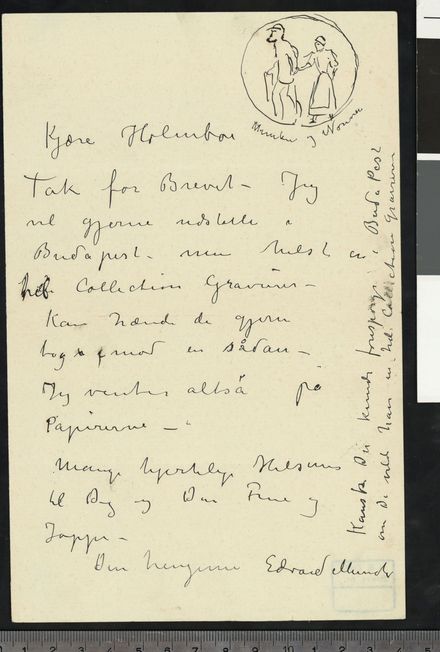 Kjære Holmboe
Tak for Brevet – Jeg
vil gjerne udstille i
Budapest – men helst en
hel Collection Gravurer –
Kan hænde de gjerne
tog imod en sådan –
Jeg venter altså på
Papirerne –
Mange hjertelige Hilsener
til Dig og Din Frue og
Din hengivne Edvard Munch
Kanskje Du kunde forespørge i BudaPest
om de vilde have en hel Collection Gravurer